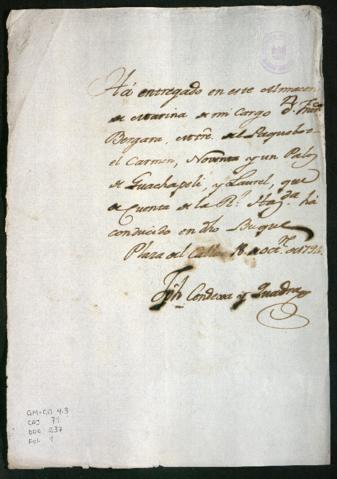 Há entregado en este Almacen
de Marina de mi Cargo D. Franco
Bergara, Mtre. del Paquebot
el Carmen, Noventa y un Palos
de Guachapelí, y Laurel, que
de Cuenta de la Rl. Hazda. há
conducido en dho Buque
Plaza del Callao 18 de Octe. de
Jph. Condexa y Quadra
GM-CO 4.3
CAJ 71
DOC 237
FOL 1